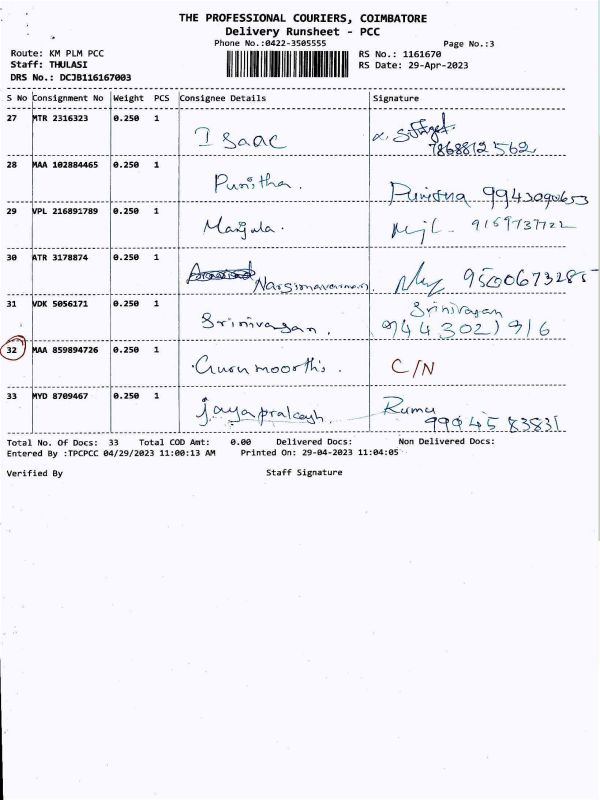 THE PROFESSIONAL COURIERS, COIMBATORE
Delivery Runsheet - PCC
Phone No.:0422-3505555 Page No.:3
Route: KM PLM PCC RS No.: 1161670
Staff: THULASI RS Date: 29-Apr-2023
DRS No.: DCJB116167003
S No Consignment No Weight PCS Consignee Details Signature
27 MTR 2316323 0.250 1 Isaac
7868812562
28 MAA 102884465 0.250 1 Punitha. 9943090653
29 VPL 216891789 0.250 1 Manjula. 9159737722
30 ATR 3178874 0.250 1 9500673285
31 VDK 5056171 0.250 1 Srinivasan. Srinivasan
9443021916
32 MAA 859894726 0.250 1 Gurumoorthi. C/N
33 MYD 8709467 0.250 1 jayaprakash. Rumu
9904583831
Total No. Of Docs: 33 Total COD Amt: 0.00 Delivered Docs: Non Delivered Docs:
Entered By :TPCPCC 04/29/2023 11:00:13 AM Printed On: 29-04-2023 11:04:05
Verified By Staff Signature